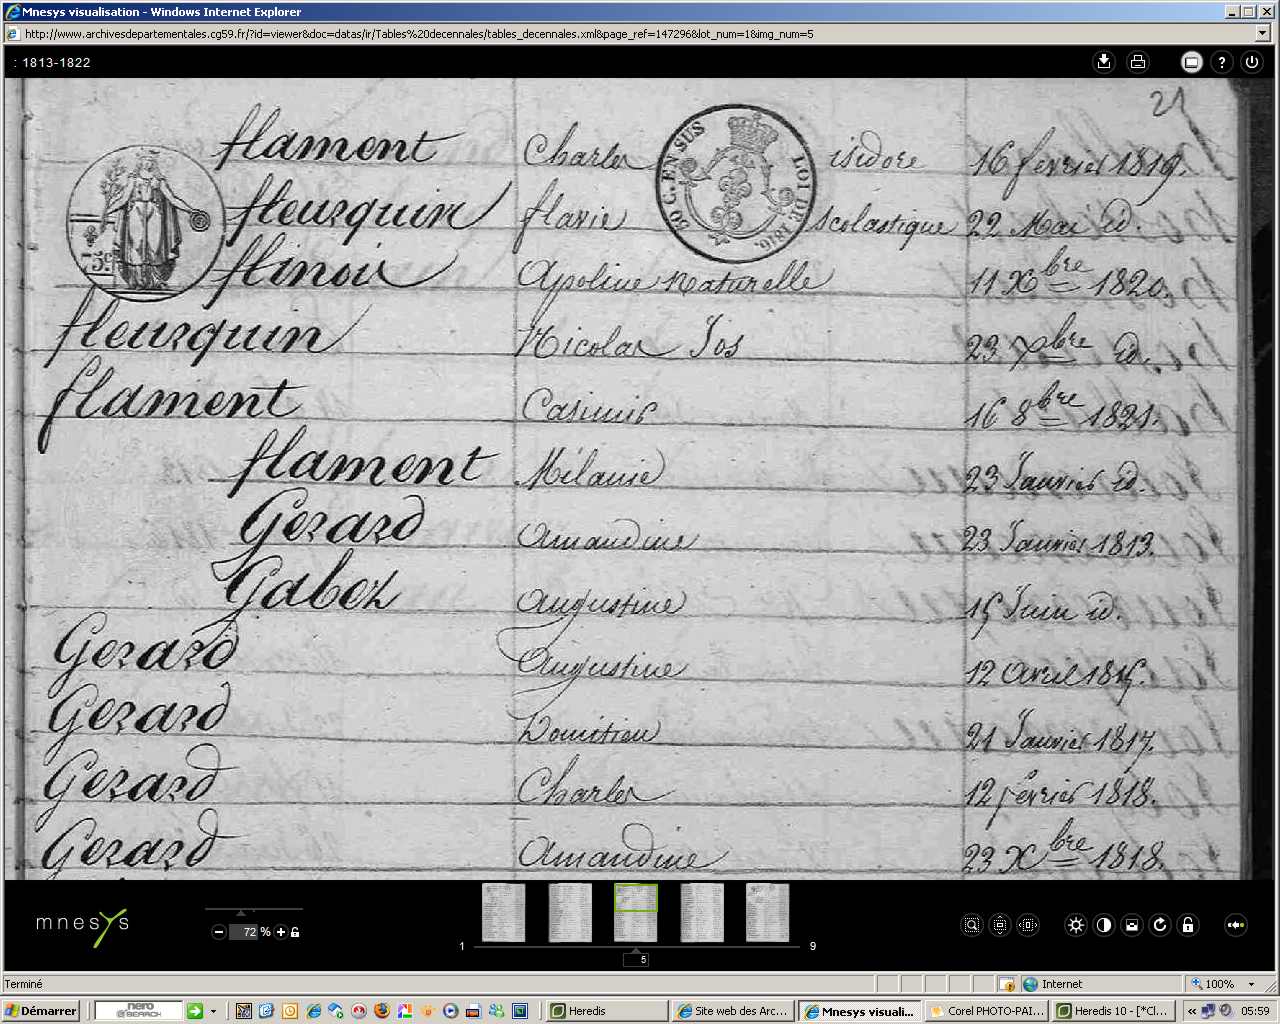 Mnesys visualisation - Windows Internet Explorer
http://www.archivesdepartementales.cg59.fr/?id=viewer&doc=datas/ir/Tables%20decennales/tables_decennales.xml&page_ref=147296&lot_num=1&img_num=5
: 1813-1822
21
flament Charles isidore 16 fevrier 1819.
80 C. EN SUS LOI DE 1816.
fleurquin flavie scolastique 22 Mai id.
75 c
flinois Apoline Naturelle 11 Xbre 1820.
fleurquin Nicolas Jos 23 Xbre id.
flament Casimir 16 8bre 1821.
flament Mélanie 23 Janvier id.
Gerard Amandine 23 Janvier 1813.
Gabez Augustine 15 Juin id.
Gerard Augustine 12 avril 1815.
Gerard Domitien 21 Janvier 1817.
Gerard Charles 12 février 1818.
Gerard Amandine 23 Xbre 1818.
mnesys
72 %
1 9
5
Terminé Internet 100%
Démarrer nero SEARCH Heredis Site web des Arc... Mnesys visuali... Corel PHOTO-PAI... Heredis 10 - [*Cl... 05:59